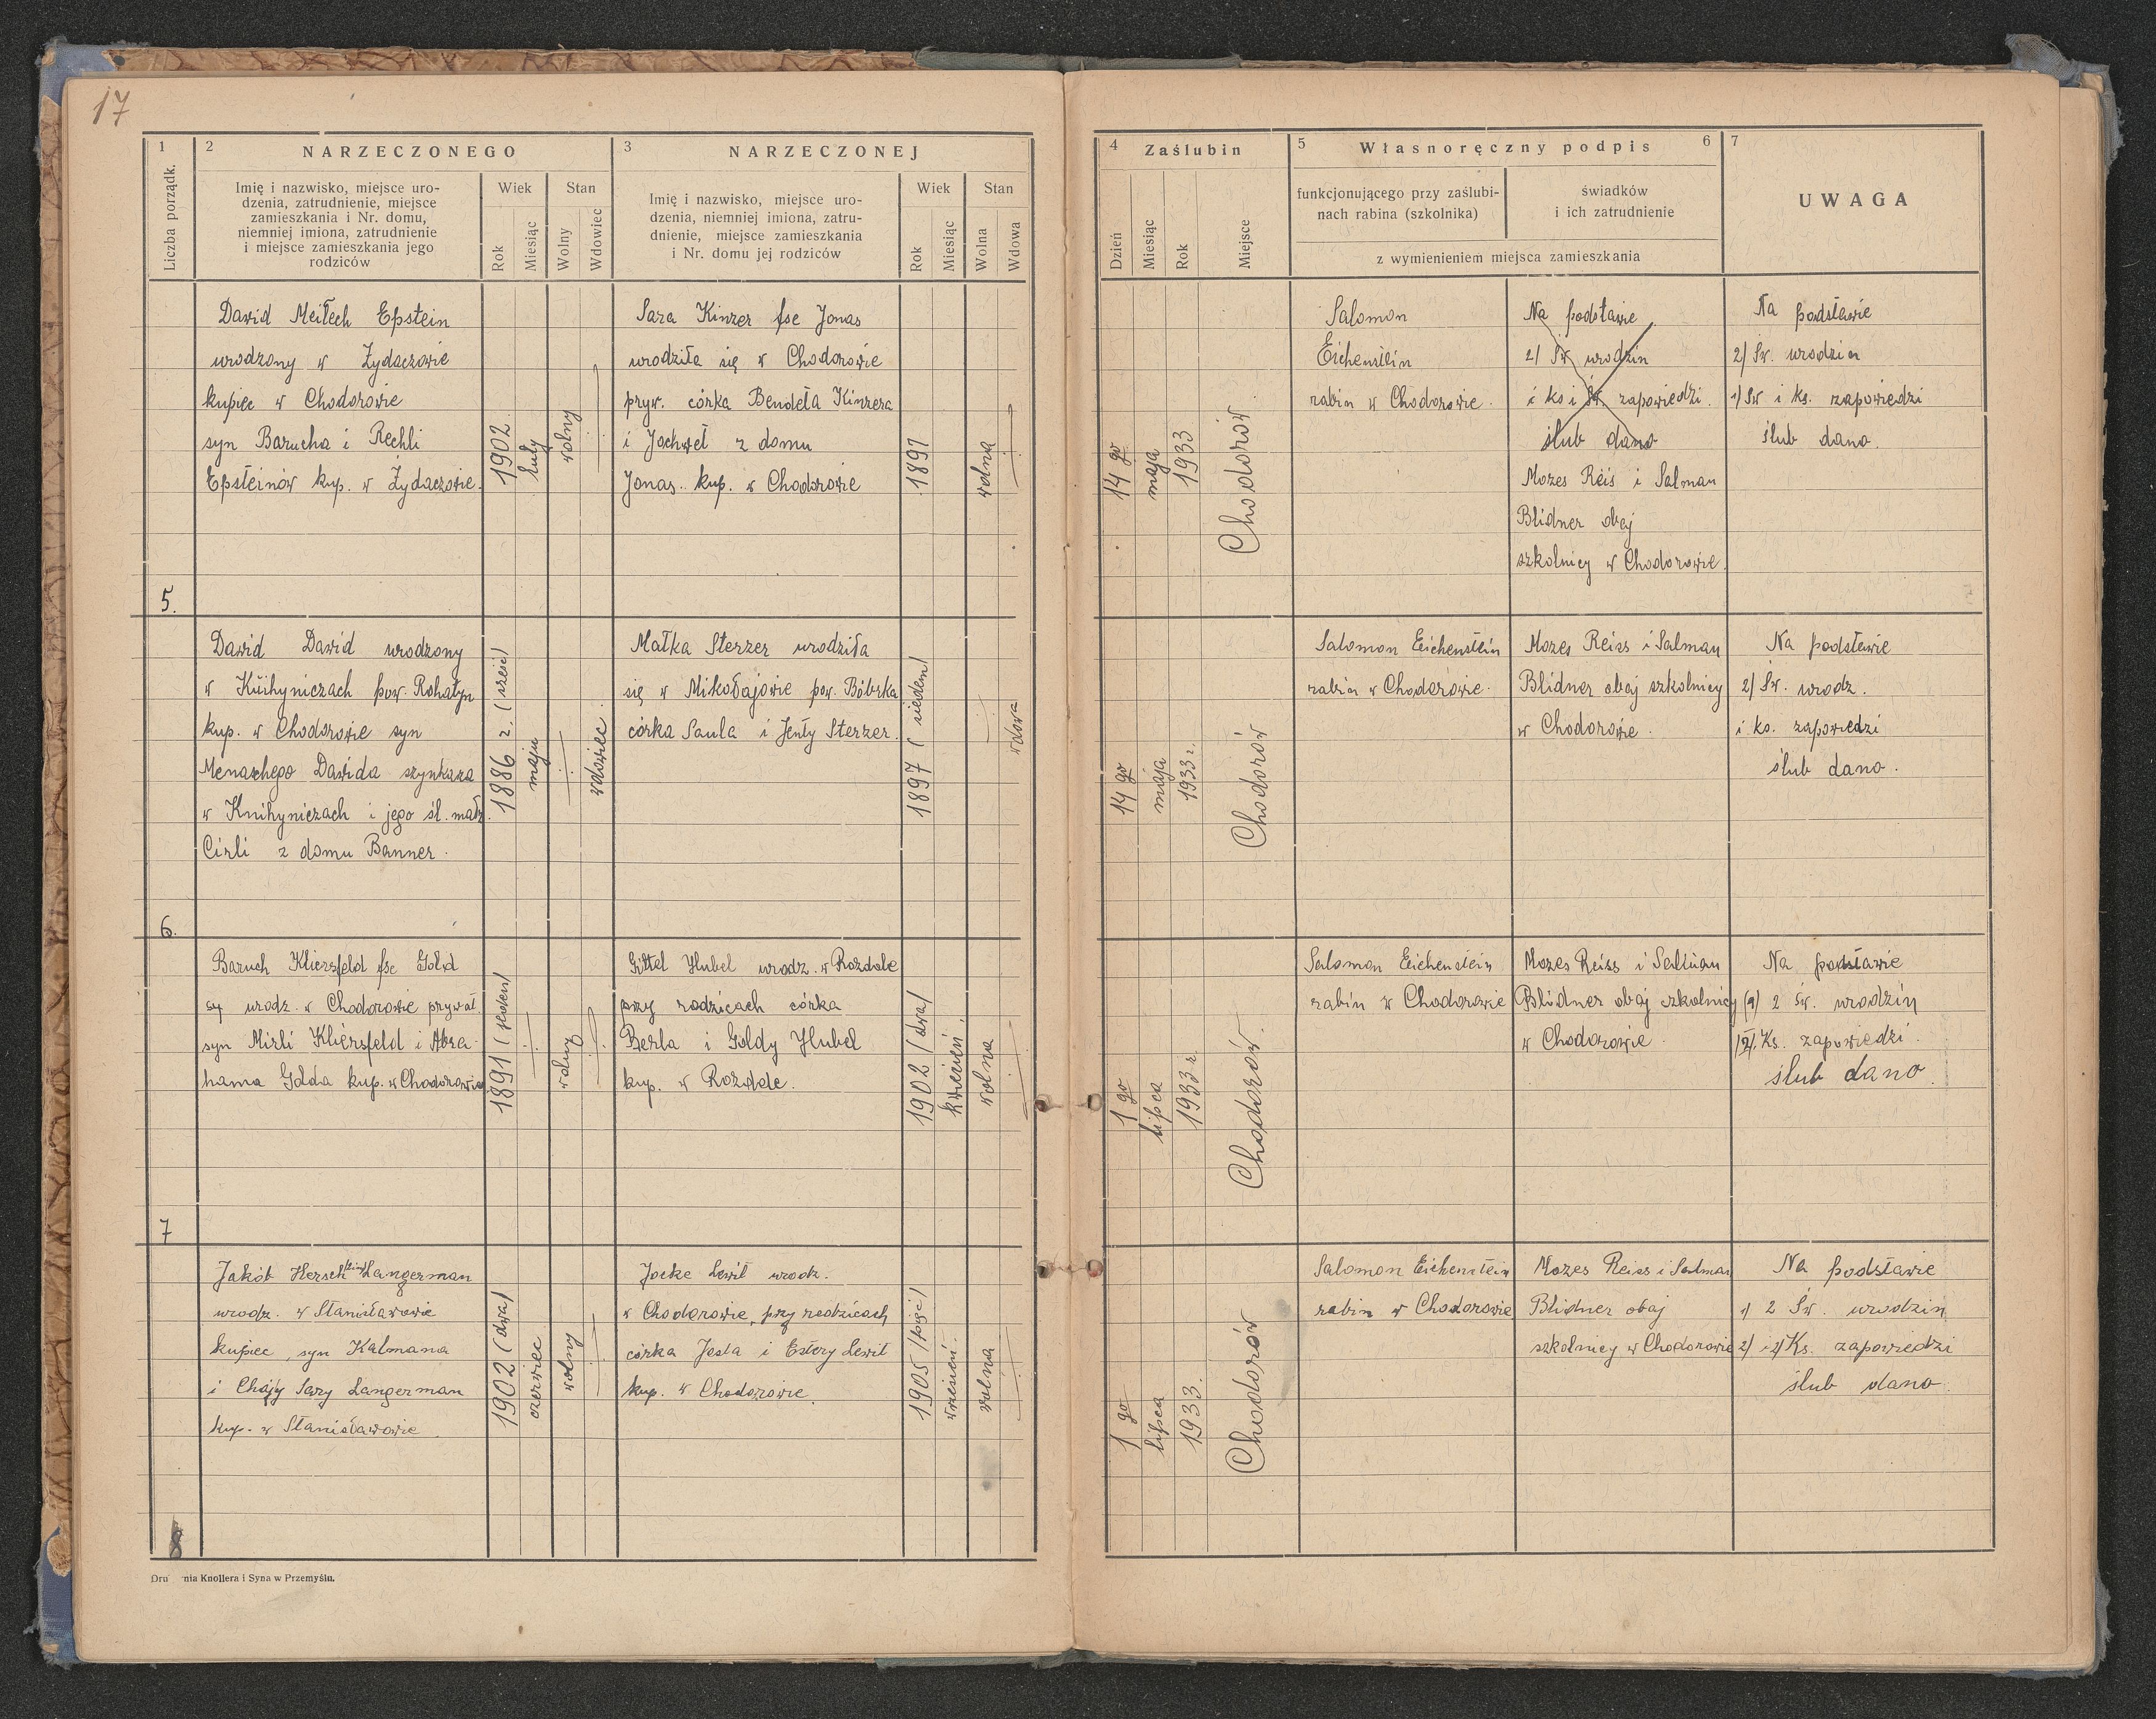 17
1
2
NARZECZONEGO
3
NARZECZONEJ
Liczba porządk.
Imię i nazwisko, miejsce uro-
dzenia, zatrudnienie, miejsce
zamieszkania i Nr. domu,
niemniej imiona, zatrudnienie
i miejsce zamieszkania jego
rodziców
Wiek
Stan
Rok
Miesiąc
Wolny
Wdowiec
Imię i nazwisko, miejsce uro-
dzenia, niemniej imiona, zatru-
dnienie, miejsce zamieszkania
i Nr. domu jej rodziców
Wiek
Stan
Rok
Miesiąc
Wolna
Wdowa
4
Zaślubin
5
Własnoręczny podpis
6
7
Dzień
Miesiąc
Rok
Miejsce
funkcjonującego przy zaślubi-
nach rabina (szkolnika)
świadków
i ich zatrudnienie
z wymienieniem miejsca zamieszkania
UWAGA
5.
Dawid Meilech Epstein
urodzony w Żydaczowie
kupiec w Chodorowie
syn Barucha i Rechli
Epsteinów kup. w Żydaczowie.
1902
luty
wolny
Sara Kinzer fse Jonas
urodziła się w Chodorowie
pryw. córka Bendeta Kinzera
i Jochwet z domu
Jonas kup. w Chodorowie
1897
wolna
14 go
maja
1933
Chodorów
Salomon
Eichenstein
rabin w Chodorowie.
Na podstawie
2/ Św urodzin
i ks i Św. zapowiedzi.
ślub dano
Mozes Reis i Salman
Blidner obaj
szkolnicy w Chodorowie.
Na podstawie
2/ Św. urodzin
1/ Św i ks. zapowiedzi
ślub dano.
6.
Dawid Dawid urodzony
w Knihyniczach pow. Rohatyn
kup. w Chodorowie syn
Menaschego Dawida szynkarza
w Knihyniczach i jego śl. małż.
Cirli z domu Banner.
1886 r. (sześć)
maju
wdowiec.
Małka Sterzer urodziła
się w Mikołajowie pow. Bóbrka
córka Saula i Jenty Sterzer.
1897 (siedem)
wdowa
14 go
maja
1933 r.
Chodorów
Salomon Eichenstein
rabin w Chodorowie.
Mozes Reiss i Salman
Blidner obaj szkolnicy
w Chodorowie.
Na podstawie
2/ Św. urodz.
i ks. zapowiedzi
ślub dano.
7
Baruch Kliersfeld fse Gold
urodz. w Chodorowie prywat.
syn Mirli Kliersfeld i Abra-
hama Golda kup. w Chodorowie
1891 (jeden)
wolny
Gittel Hubel urodz. w Rozdole
przy rodzicach córka
Berla i Goldy Hubel
kup. w Rozdole.
1902 (dwa)
kwiecień.
wolna
1 go
lipca
1933 r.
Chodorów.
Salomon Eichenstein
rabin w Chodorowie
Mozes Reiss i Salman
Blidner obaj szkolnicy
w Chodorowie.
Na podstawie
2 Św. urodzin
Ks. zapowiedzi.
ślub dano.
8
Jakób Hersch Langerman
urodz. w Stanisławowie
kupiec, syn Kalmana
i Chaji Sary Langerman
kup. w Stanisławowie.
1902 (dwa)
czerwiec
wolny
Jocke Lewit urodz.
w Chodorowie, przy rodzicach
córka Josla i Estery Lewit
kup. w Chodorowie.
1905 (pięć)
wrzesień.
wolna
1 go
lipca
1933.
Chodorów
Salomon Eichenstein
rabin w Chodorowie
Mozes Reiss i Salman
Blidner obaj
szkolnicy w Chodorowie
Na podstawie
1/ 2 Św. urodzin
2/ i Ks. zapowiedzi
ślub dano.
nia Knollera i Syna w Przemyślu.